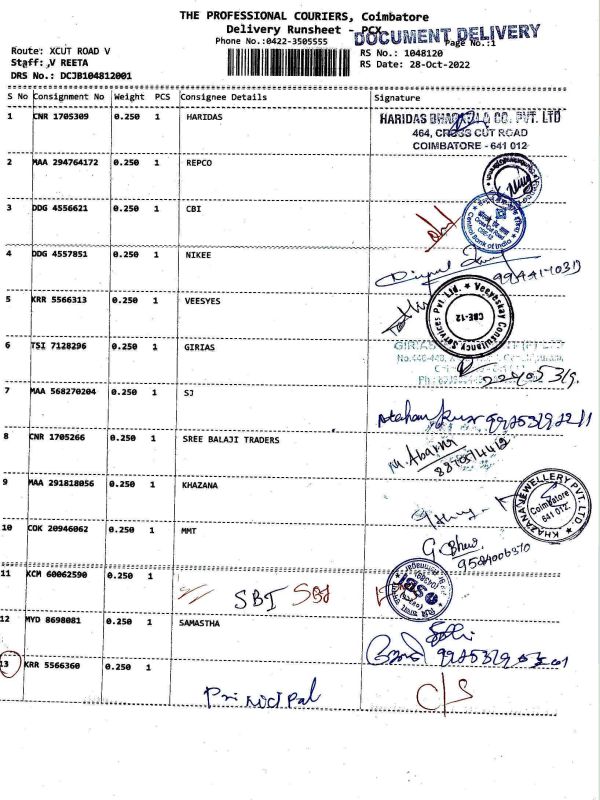 THE PROFESSIONAL COURIERS, Coimbatore
Delivery Runsheet - PCX
DOCUMENT DELIVERY
Phone No.:0422-3505555
Page No.:1
Route: XCUT ROAD V
RS No.: 1048120
Staff: V REETA
RS Date: 28-Oct-2022
DRS No.: DCJB104812001
S No Consignment No Weight PCS Consignee Details Signature
1 CNR 1705309 0.250 1 HARIDAS
HARIDAS CO. PVT. LTD
464, CROSS CUT ROAD
COIMBATORE - 641 012
2 MAA 294764172 0.250 1 REPCO
3 DDG 4556621 0.250 1 CBI
Central Bank of India
4 DDG 4557851 0.250 1 NIKEE
5 KRR 5566313 0.250 1 VEESYES
Veeyeskay Consultancy Services Pvt. Ltd.
CBE-12
6 TSI 7128296 0.250 1 GIRIAS
7 MAA 568270204 0.250 1 SJ
8 CNR 1705266 0.250 1 SREE BALAJI TRADERS
M. Abarna
9 MAA 291818056 0.250 1 KHAZANA
KHAZANA JEWELLERY PVT. LTD.
Coimbatore
641 012.
10 COK 20946062 0.250 1 MMT
11 KCM 60062590 0.250 1
SBI SBI
SBI
12 MYD 8698081 0.250 1 SAMASTHA
13 KRR 5566360 0.250 1
Principal
C/S